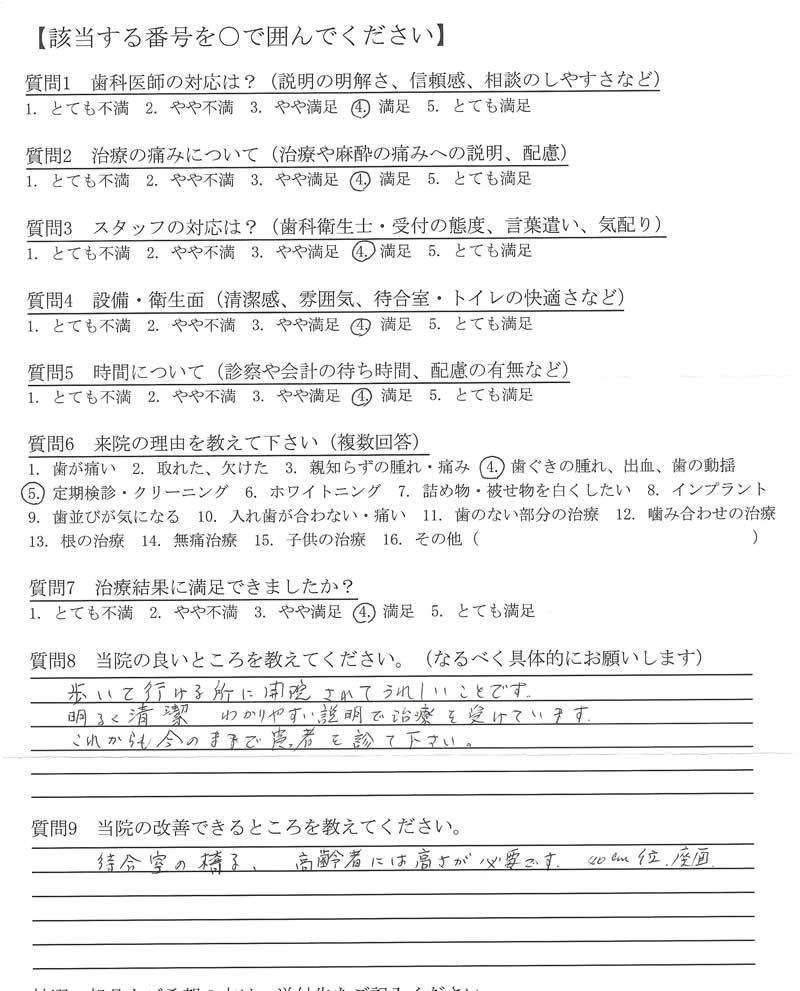 【該当する番号を○で囲んでください】
質問1　歯科医師の対応は？（説明の明解さ、信頼感、相談のしやすさなど）
1. とても不満　2. やや不満　3. やや満足　4. 満足　5. とても満足
質問2　治療の痛みについて（治療や麻酔の痛みへの説明、配慮）
1. とても不満　2. やや不満　3. やや満足　4. 満足　5. とても満足
質問3　スタッフの対応は？（歯科衛生士・受付の態度、言葉遣い、気配り）
1. とても不満　2. やや不満　3. やや満足　4. 満足　5. とても満足
質問4　設備・衛生面（清潔感、雰囲気、待合室・トイレの快適さなど）
1. とても不満　2. やや不満　3. やや満足　4. 満足　5. とても満足
質問5　時間について（診察や会計の待ち時間、配慮の有無など）
1. とても不満　2. やや不満　3. やや満足　4. 満足　5. とても満足
質問6　来院の理由を教えて下さい（複数回答）
1. 歯が痛い　2. 取れた、欠けた　3. 親知らずの腫れ・痛み　4. 歯ぐきの腫れ、出血、歯の動揺
5. 定期検診・クリーニング　6. ホワイトニング　7. 詰め物・被せ物を白くしたい　8. インプラント
9. 歯並びが気になる　10. 入れ歯が合わない・痛い　11. 歯のない部分の治療　12. 噛み合わせの治療
13. 根の治療　14. 無痛治療　15. 子供の治療　16. その他（　　　　　　　　）
質問7　治療結果に満足できましたか？
1. とても不満　2. やや不満　3. やや満足　4. 満足　5. とても満足
質問8　当院の良いところを教えてください。（なるべく具体的にお願いします）
歩いて行ける所に開院されてうれしいことです。
明るく清潔　わかりやすい説明で治療を受けています。
これからも今のままで患者を診て下さい。
質問9　当院の改善できるところを教えてください。
待合室の椅子、　高齢者には高さが必要です。　40cm位、座面